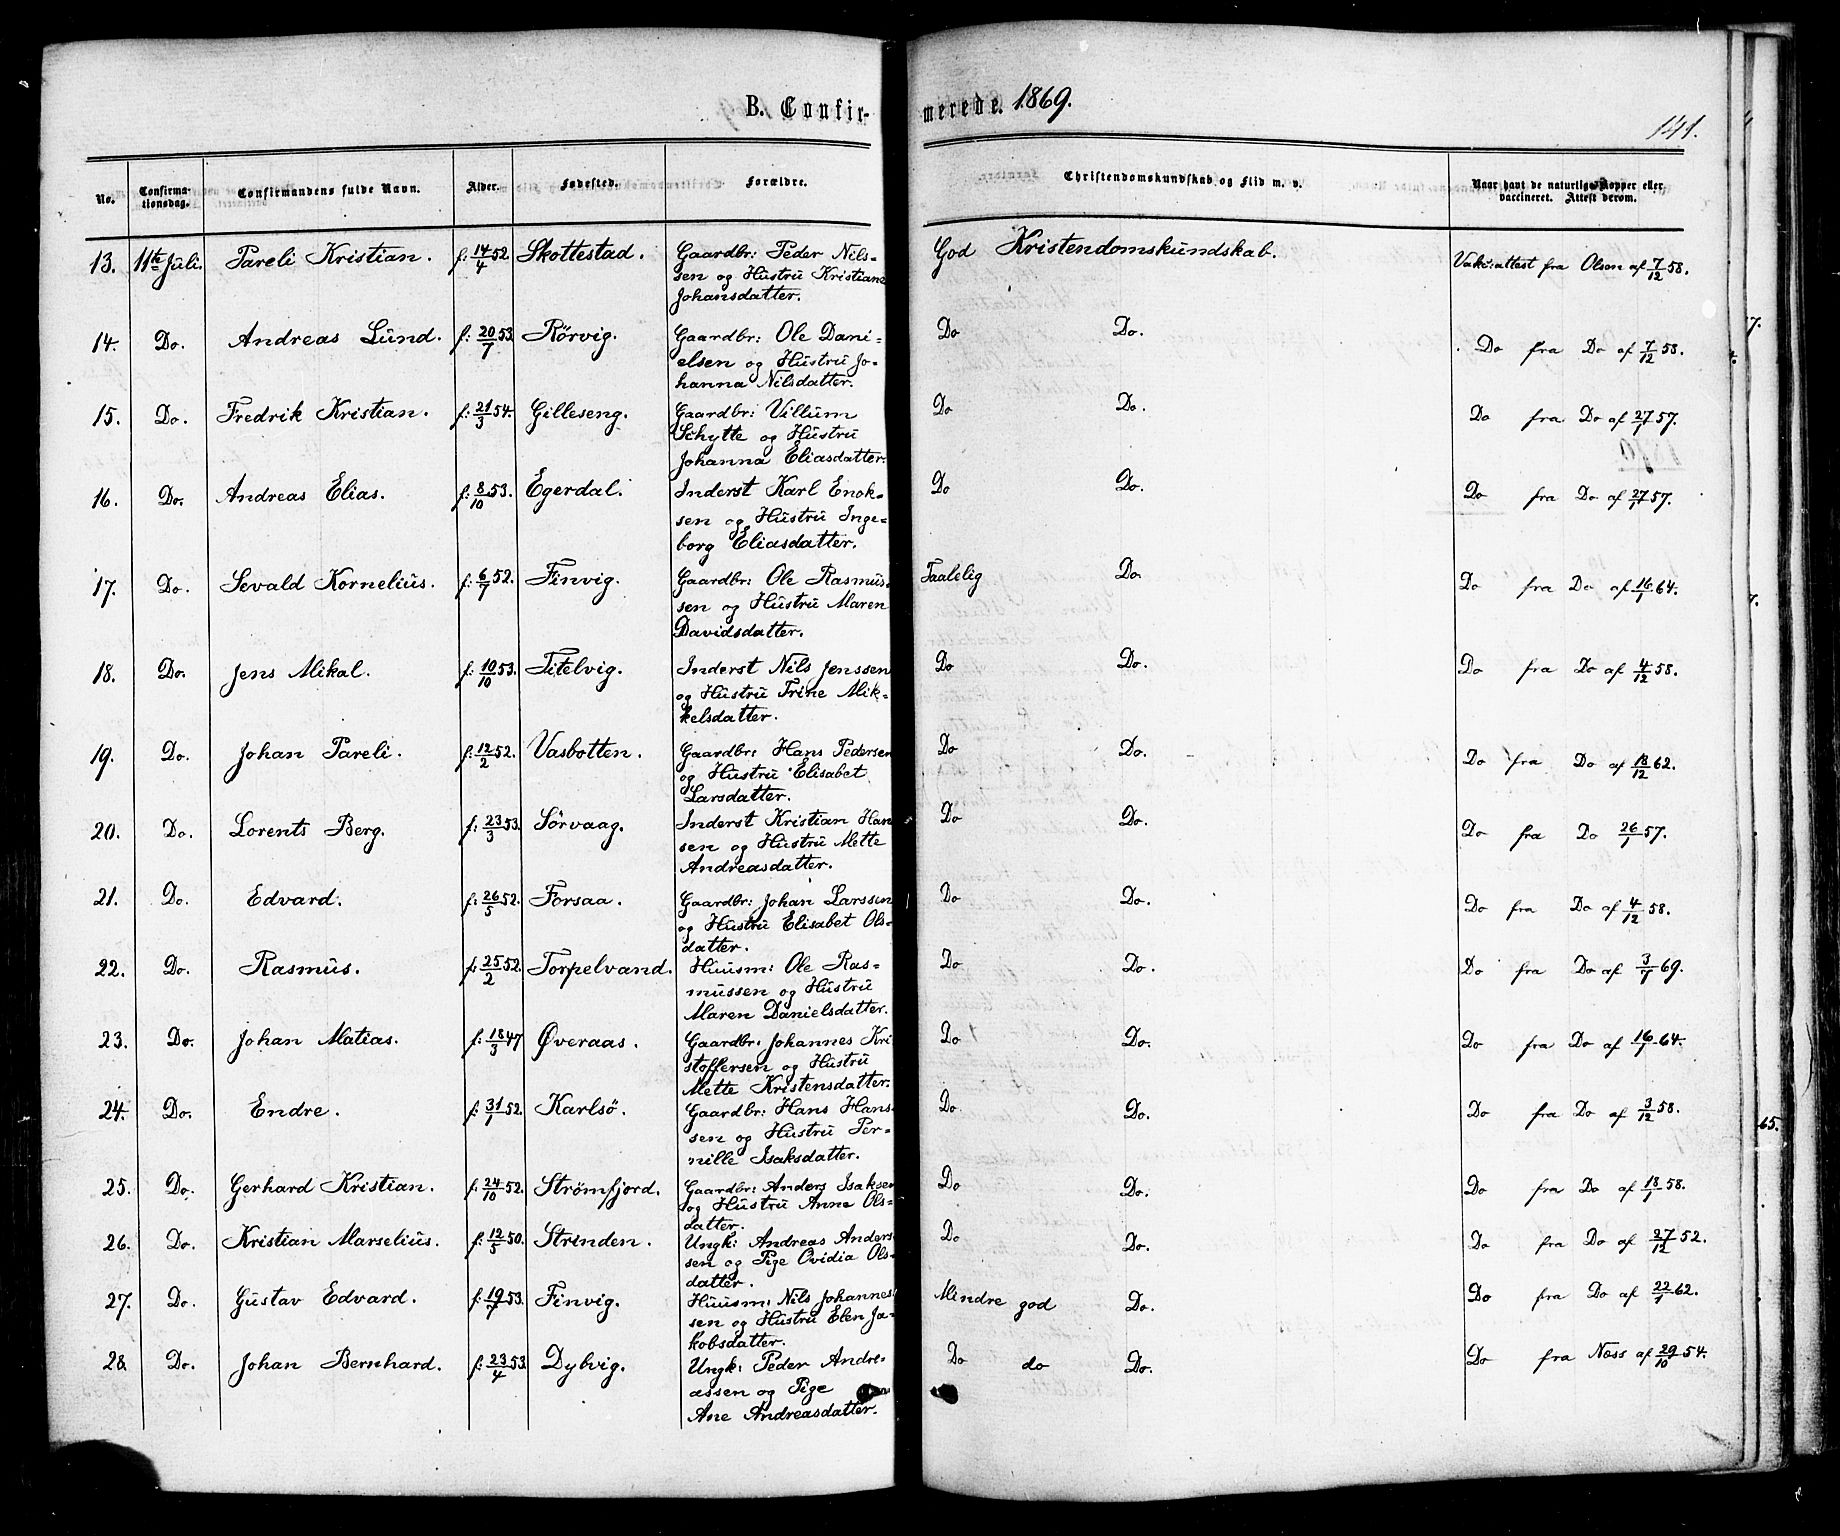 B. Confir-
merede. 1869.
141.
No.
Confirma-
tionsdag.
Confirmandens fulde Navn.
Alder.
Fødested.
Forældre.
Christendomskundskab og Flid m. v.
Naar havt de naturlige Kopper eller
vaccineret. Attest derom.
13. 11te Juli. Pareli Kristian. f: 14/4 52. Skottestad. Gaardbr: Peder Nils- God Kristendomskundskab. Vak: attest fra Olsen af 7/12 58.
sen og Hustru Kristiane
Johansdatter.
14. Do. Andreas Lund. f: 20/7 53. Rörvig. Gaardbr: Ole Dani- Do Do. Do fra Do af 7/12 58.
elsen og Hustru Jo-
hanna Nilsdatter.
15. Do. Fredrik Kristian. f: 21/3 54. Gilleseng. Gaardbr: Villum Do Do. Do fra Do af 27/1 57.
Schytte og Hustru
Johanna Eliasdatter.
16. Do. Andreas Elias. f: 8/10 53. Egerdal. Inderst Karl Enok- Do Do. Do fra Do af 27/1 57.
sen og Hustru Inge-
borg Eliasdatter.
17. Do. Sevald Kornelius. f: 6/7 52. Finvig. Gaardbr: Ole Rasmus- Taalelig Do. Do fra Do af 16/1 64.
sen og Hustru Maren
Davidsdatter.
18. Do. Jens Mikal. f: 10/10 53. Titelvig. Inderst Nils Jenssen Do Do. Do fra Do af 4/12 58.
og Hustru Trine Mik-
kelsdatter.
19. Do. Johan Pareli. f: 12/2 52. Vasbotten. Gaardbr: Hans Pedersen Do Do. Do fra Do af 18/12 62.
og Hustru Elisabet
Larsdatter.
20. Do. Lorents Berg. f: 23/3 53. Sörvaag. Inderst Kristian Han Do Do. Do fra Do 26/1 57.
sen og Hustru Mette
Andreasdatter.
21. Do. Edvard. f: 26/5 52. Forsaa. Gaardbr: Johan Larssen Do Do. Do fra Do af 4/12 58.
og Hustru Elisabet Ols-
datter.
22. Do. Rasmus. f: 25/2 52. Torpelvand. Huusm: Ole Ras- Do Do. Do fra Do af 3/7 69.
mussen og Hustru
Maren Danielsdatter.
23. Do. Johan Matias. f: 18/3 47 Øveraas. Gaardbr: Johannes Kri Do Do. Do fra Do af 16/1 64.
stoffersen og Hustru
Mette Kristensdatter.
24. Do. Endre. f: 31/1 52. Karlsö. Gaardbr: Hans Hans- Do Do. Do fra Do af 3/12 58.
sen og Hustru Per-
nille Isaksdatter.
25. Do. Gerhard Kristian. f: 24/10 52. Strömfjord. Gaardbr: Anders Isaksen Do Do. Do fra Do af 18/1 58.
og Hustru Anne Ols-
datter.
26. Do. Kristian Marselius. f: 12/5 50. Strinden. Ungk: Andreas Anders Do Do. Do fra Do af 27/12 52.
sen og Pige Ovidia Ols-
datter.
27. Do. Gustav Edvard. f: 19/7 53. Finvig. Huusm: Nils Johannes Mindre god Do. Do fra Do af 22/1 62.
sen og Hustru Elen Ja-
kobsdatter.
28. Do. Johan Bernhard. f: 23/4 53. Dybvig. Ungk: Peder Andre- Do do Do. Do fra Næss af 29/10 54.
assen og Pige
Ane Andreasdatter.
65.